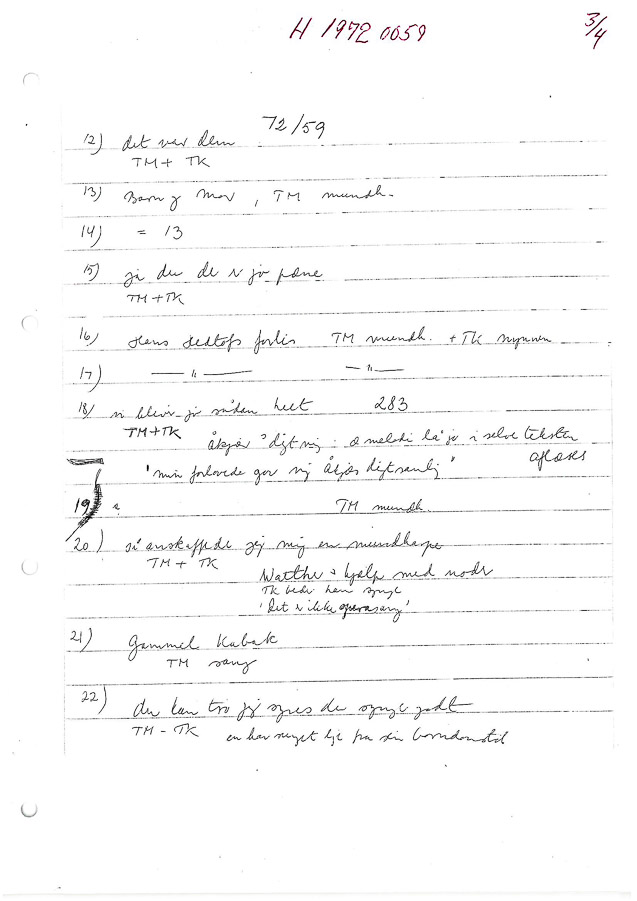 H 1972 0059
3/4
72/59
12) det var dem
TM + TK
13) Barn og mor, TM mundh.
14) = 13
15) ja du de er jo pæne
TM + TK
16) Hans Hedtofs forlis TM mundh. + TK nynnen
17) — " — — " —
18) vi blev jo sådan helt 283
TM + TK Åkjær digt : melodi lå jo i selve teksten
"min forlovede gav mig Åkjærs digtsamling" aflæses
19) TM mundh
20) så anskaffede jeg mig en mundharpe
TM + TK
hjælp med noder
TK beder ham synge
'det er ikke operasang'
21) Gammel Kabak
TM sang
22) du kan tro jeg synes du synger godt
TM - TK en har noget lyt fra sin barndomstid